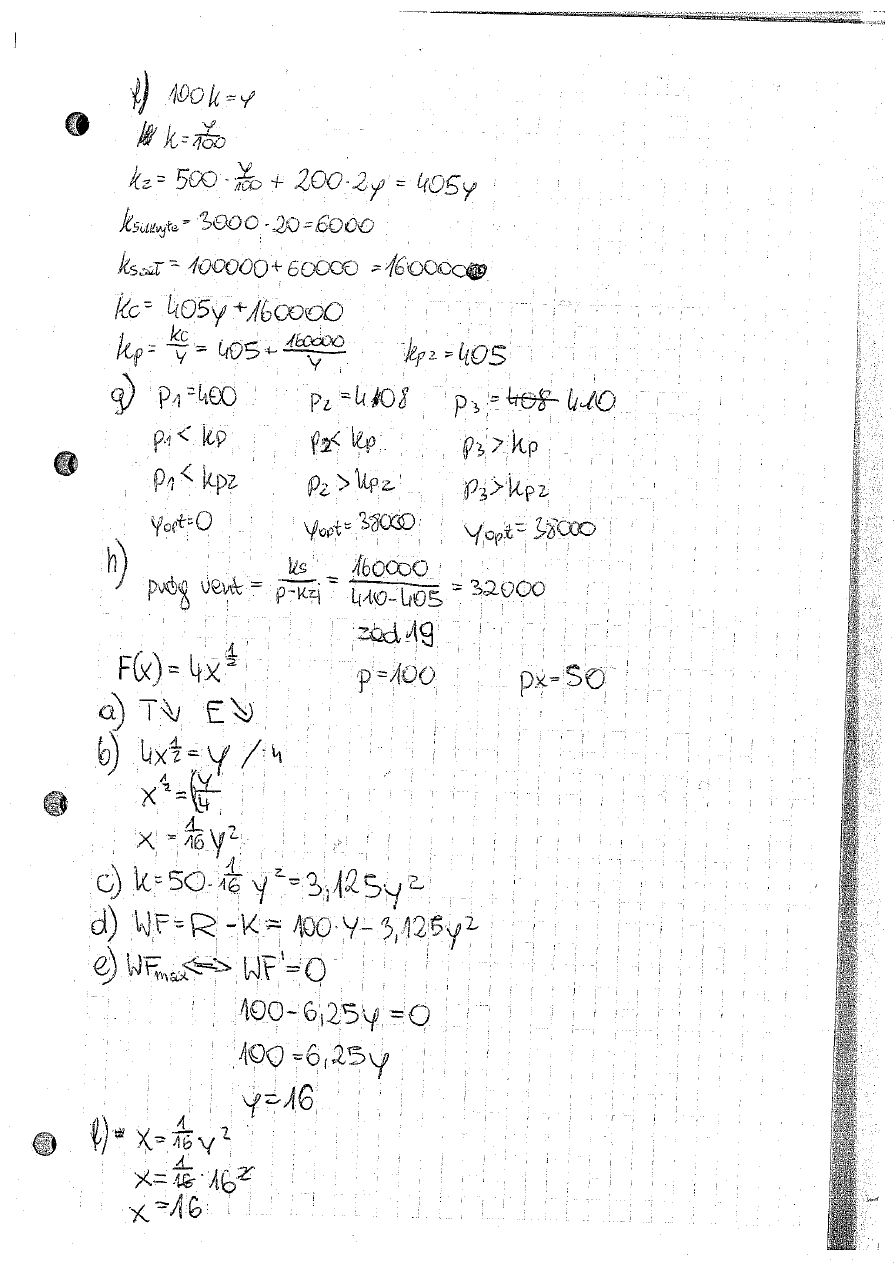 f) 100k=y
k=y/100
kz = 500 · y/100 + 200·2y = 405y
ksukryte = 3000·20=6000
kscał = 100000+60000 =160000
kc = 405y+160000
kp = kc/y = 405 + 160000/y kpz=405
g) p1=400 p2=408 p3=408 410
p1<kp p2<kp p3>kp
p1<kpz p2>kpz p3>kpz
yopt=0 yopt=38000 yopt=38000
h)
próg rent = ks/p-kzj = 160000/410-405 = 32000
zad 19
F(x) = 4x^1/2 p=100 px=50
a) T↘ E↘
b) 4x^1/2 = y /:4
x^1/2 = y/4
x = 1/16 y²
c) k=50·1/16 y²=3,125y²
d) WF=R-K= 100·y-3,125y²
e) WFmax⇔ WF'=0
100-6,25y=0
100=6,25y
y=16
f) x=1/16 y²
x=1/16·16²
x=16